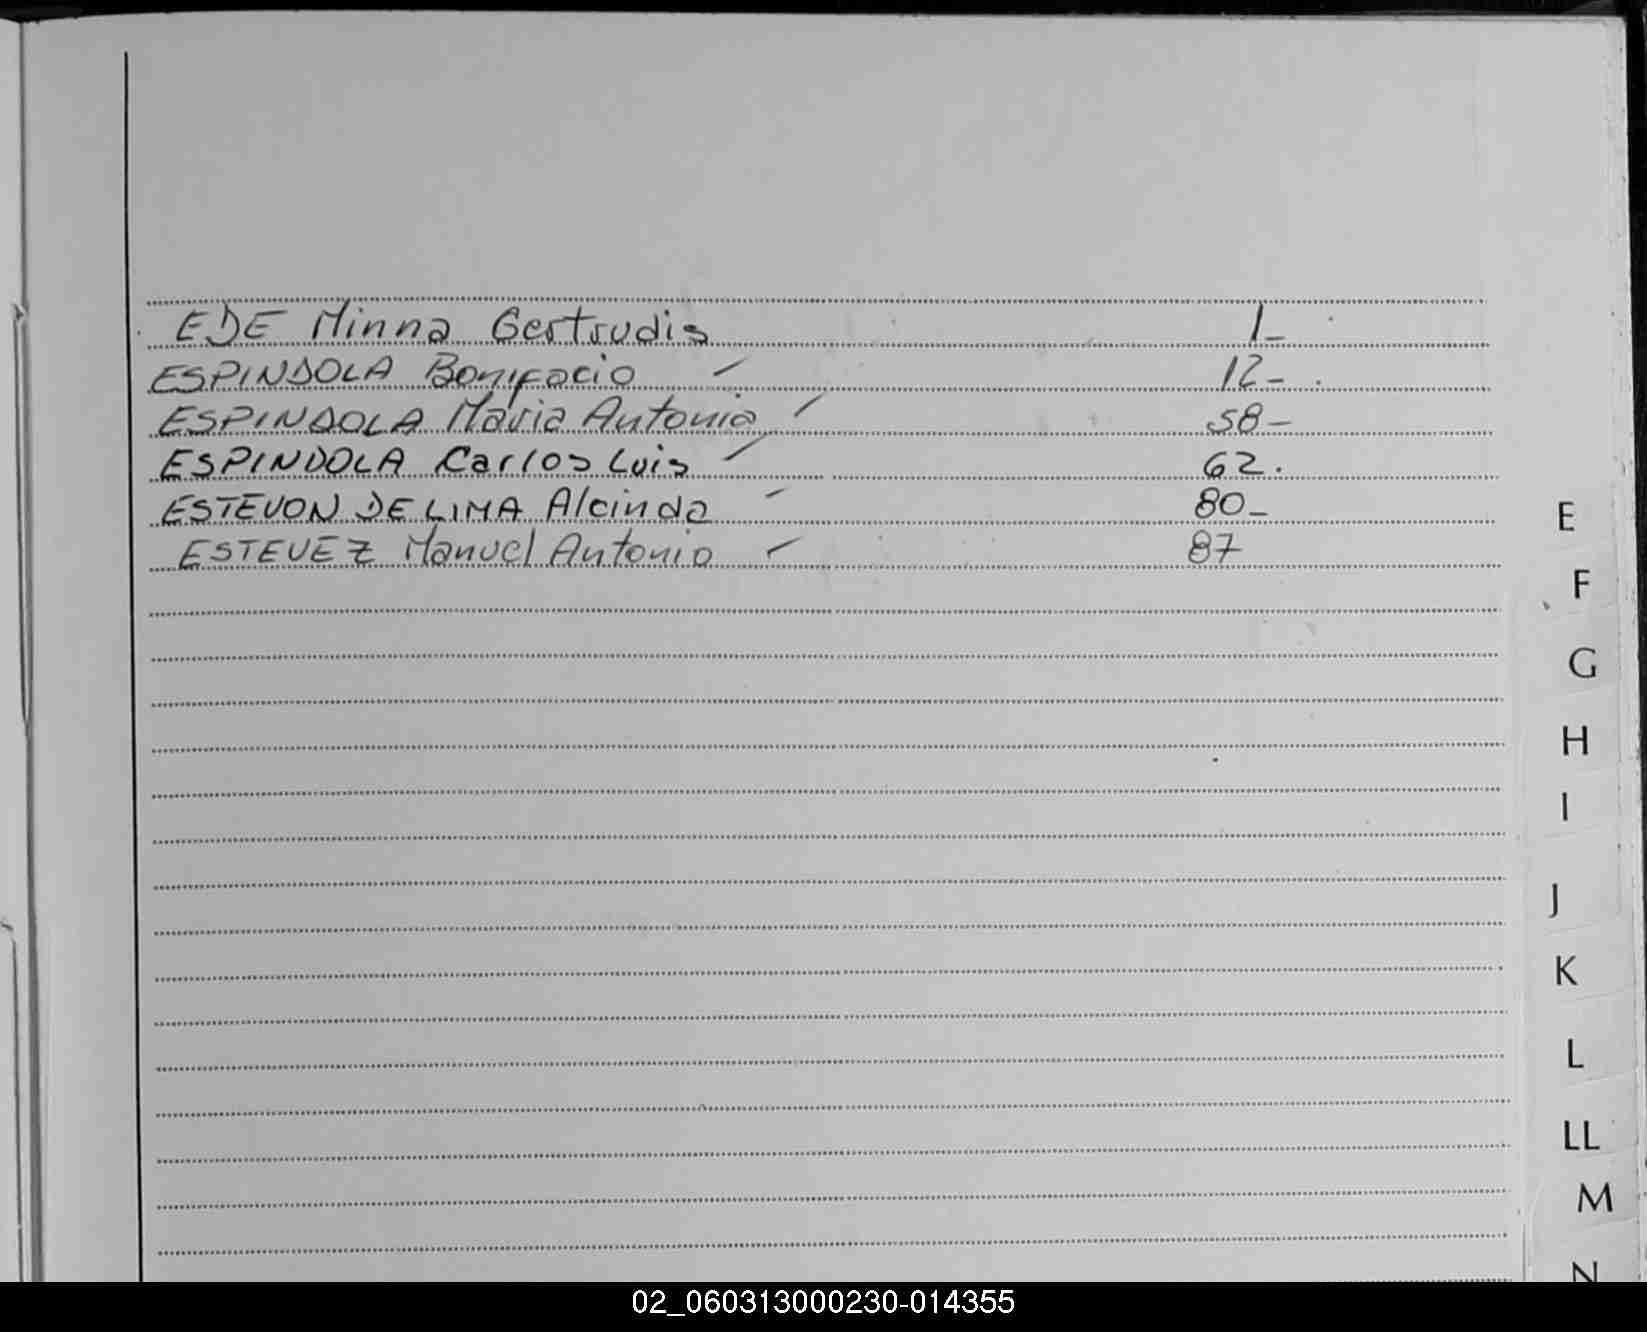 EDE Minna Gertrudis 1-
ESPINDOLA Bonifacio 12-
ESPINDOLA Maria Antonia 58-
ESPINDOLA Carlos Luis 62.
ESTEVON DE LIMA Alcinda 80-
ESTEVEZ Manuel Antonio 87
E
F
G
H
I
J
K
L
LL
M
N
02_060313000230-014355